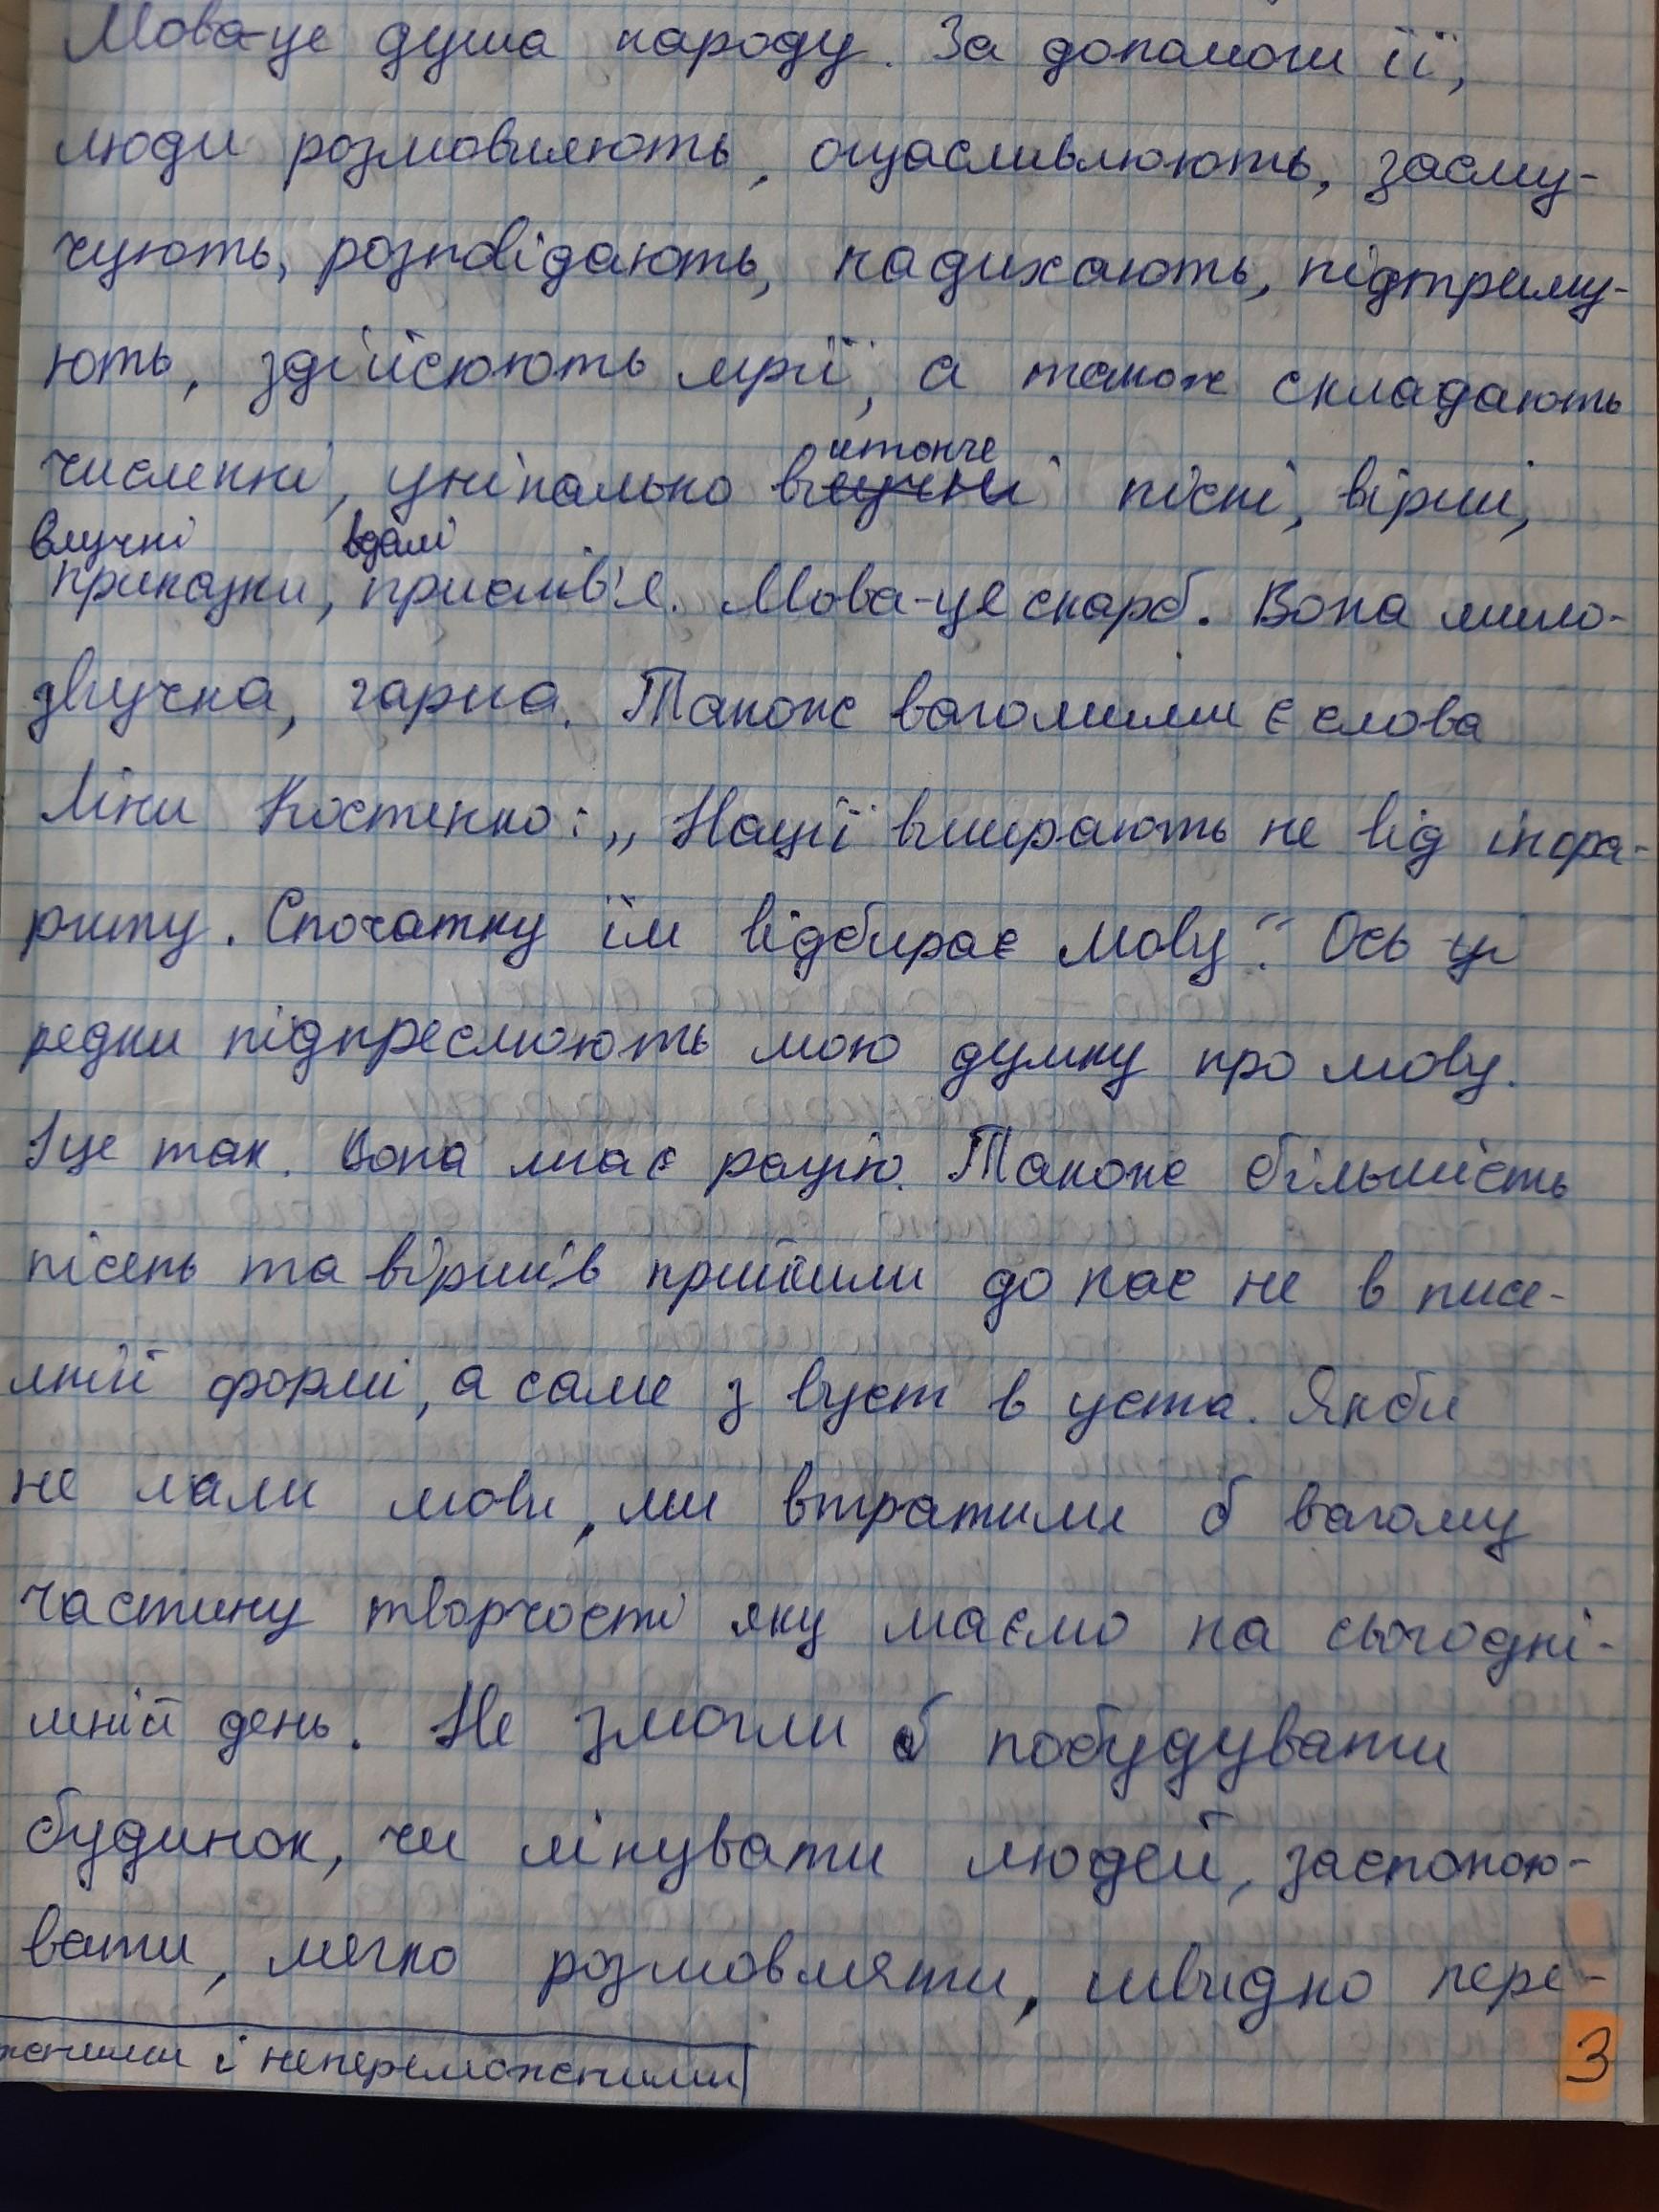 Мова-це душа народу. За допомоги її,
люди розмовляють, ощасливлюють, засму-
чують, розповідають, надихають, підтриму-
ють, здійсюють мрії, а також складають
витонче
численні, унікально влучні пісні, вірші,
влучні вдалі
приказки, прислів'я. Мова-це скарб. Вона мило-
звучна, гарна. Також вагомими є слова
Ліни Костенко: „Нації вмирають не від інфа-
ркту. Спочатку їм відбирає мову". Ось ці
редки підкреслюють мою думку про мову.
І це так. Вона має рацію. Також більшість
пісень та віршів прийшли до нас не в письме-
мній формі, а саме з вуст в уста. Якби
не мали мови, ми втратили б вагому
частину творчості яку маємо на сьогодні-
шній день. Не змогли б побудувати
будинок, чи лікувати людей, заспокою-
вати, легко розмовляти, швидко пере-
женими і непереможеними
3